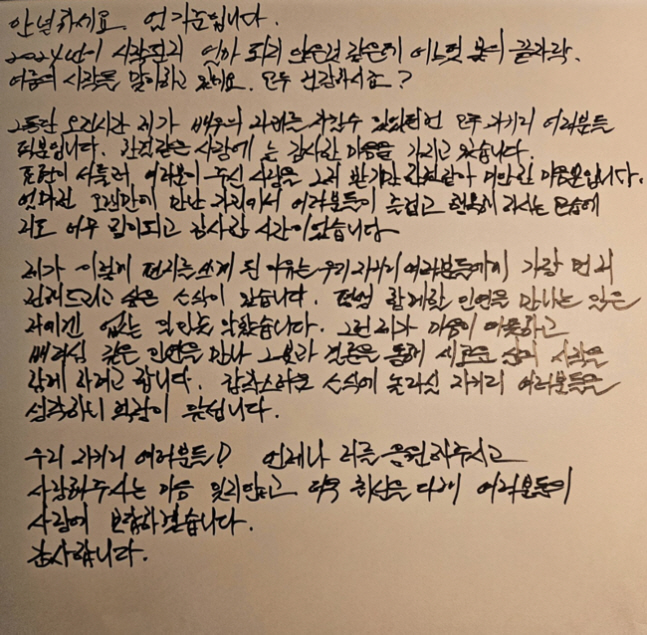 안녕하세요. 엄기준입니다.
2024년이 시작된지 얼마 되지 않은것 같은데 어느덧 봄의 끝자락,
여름의 시작을 맞이하고 있네요. 모두 건강하시죠?
그동안 오랜시간 제가 배우의 자리를 지킬수 있었던건 모두 자기지 여러분들
덕분입니다. 한결같은 사랑에 늘 감사한 마음을 가지고 있습니다.
표현이 서툴러 여러분이 주신 사랑을 그저 받기만 한것같아 미안한 마음뿐입니다.
얼마전 오랜만에 만난 자리에서 여러분들이 즐겁고 행복해 하시는 모습에
저도 너무 힘이되고 감사한 시간이었습니다
제가 이렇게 편지를 쓰게 된 이유는 우리 자기지 여러분들에게 가장 먼저
전해드리고 싶은 소식이 있습니다. 평생 함께할 인연을 만나는 일은
저에겐 없는 일인줄 알았습니다. 그런 제가 마음이 따뜻하고
배려심 깊은 인연을 만나 그분과 결혼을 통해 새로운 삶의 시작을
함께 하려고 합니다. 갑작스러운 소식에 놀라실 자기지 여러분들을
생각하니 걱정이 앞섭니다.
우리 자기지 여러분들! 언제나 저를 응원해주시고
사랑해주시는 마음 잊지않고 더욱 최선을 다해 여러분들의
사랑에 보답하겠습니다.
감사합니다.